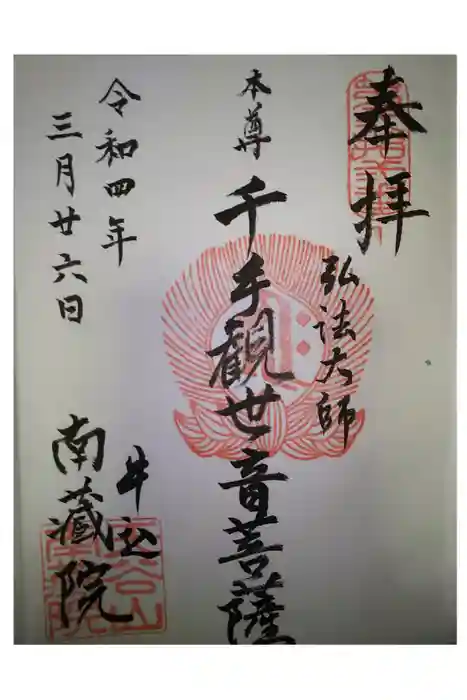 奉拝
弘法大師
本尊
千手観世音菩薩
令和四年
三月廿六日
南蔵院